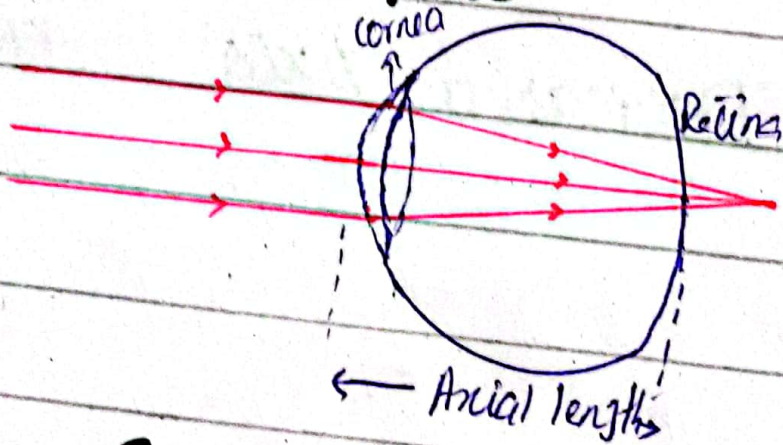 cornea
Retina
Axial length